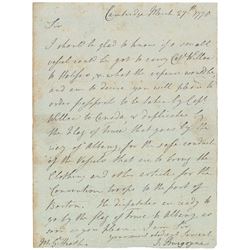 Cambridge March 27th 1778
Sir
I should be glad to know if a small
vessel could be got to carry Capt Willoe
to Halifax, & what the expence would be,
and am to desire you will please to
order passports to be taken by Capt
Willoe to Canada, & duplicates
the Flag of Truce that goes by the
way of Albany, for the safe conduct
of the Vessels that are to bring the
Cloathing and other articles for the
Convention troops to the port of
Boston. The dispatches are ready to
go by the flag of truce to Albany,
I am Sir
your most obedient Servant
M. G. Heath J. Burgoyne